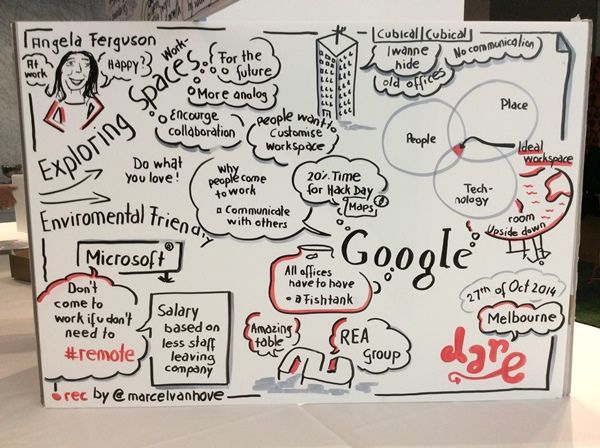 Angela Ferguson
At
work
Happy?
Exploring
Work-
Spaces
For the
future
More analog
Encourge
collaboration
People want to
Customise
workspace
Cubical Cubical
I wanne
hide
No communication
old offices
People
Place
Tech-
nology
Ideal
workspace
room
Upside down
Do what
You love!
Why
people come
to work
Communicate
with others
20% Time
for Hack Day
Maps
Enviromental Friendly
Google
Microsoft®
Don't
come to
work if u don't
need to
#remote
Salary
based on
less staff
leaving
company
All offices
have to have
a Fishtank
Amazing
table
REA
Group
27th of Oct 2014
Melbourne
dare
rec by @marcelvanhove